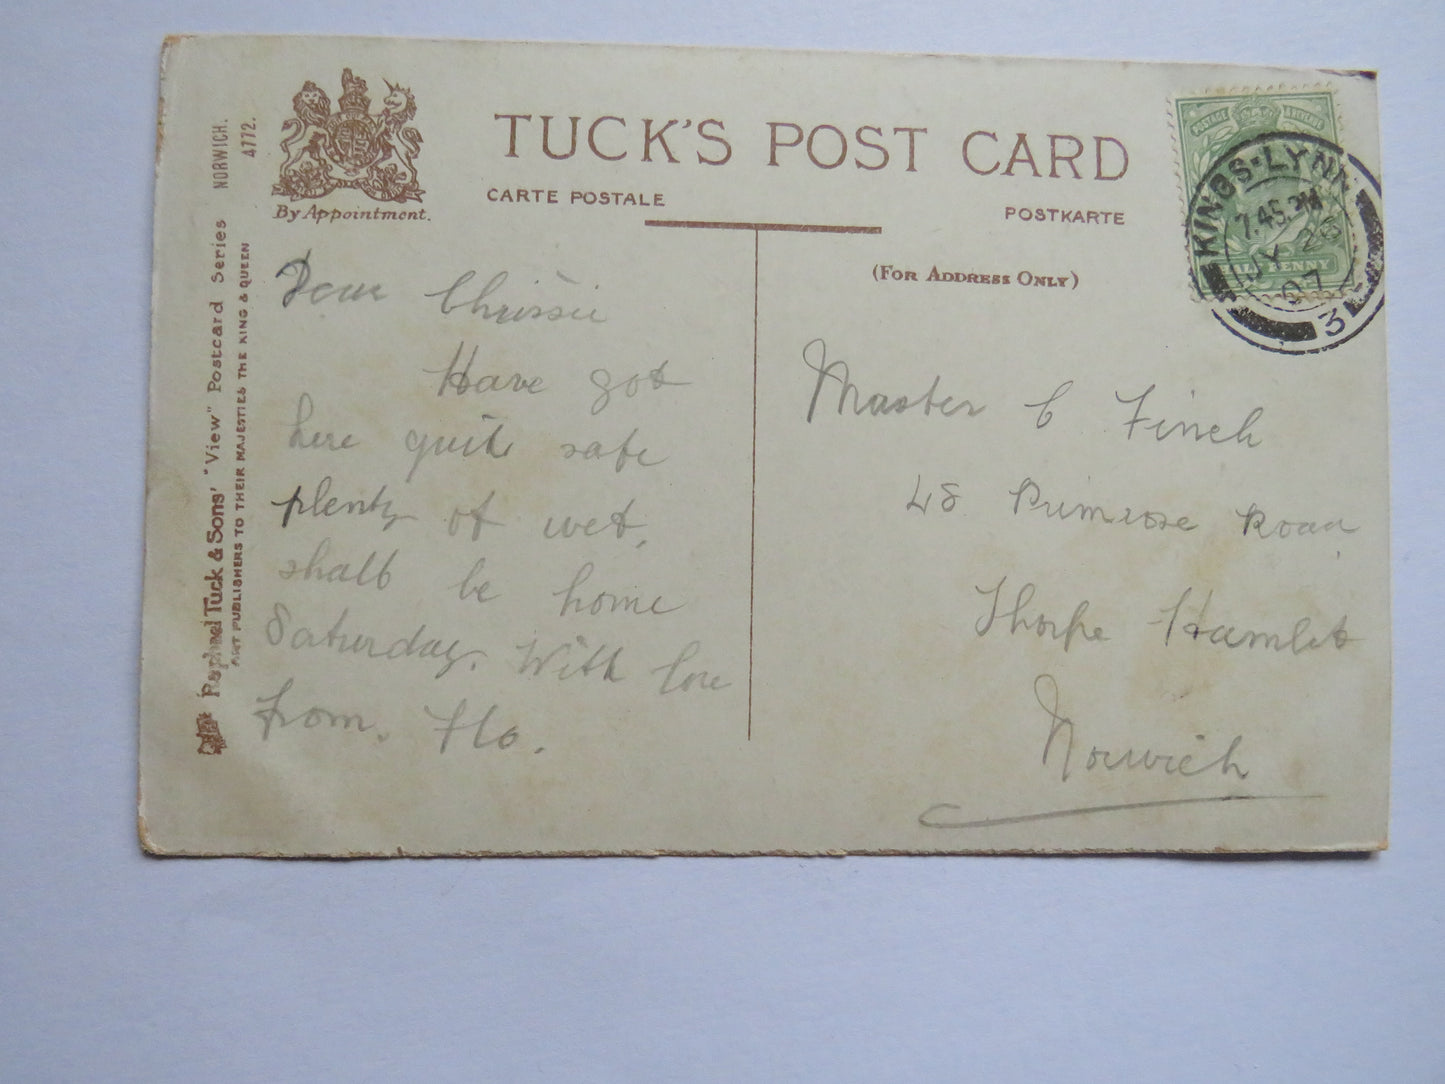 NORWICH.
4772.
Raphael Tuck & Sons' "View" Postcard Series
ART PUBLISHERS TO THEIR MAJESTIES THE KING & QUEEN
By Appointment.
TUCK'S POST CARD
CARTE POSTALE
POSTKARTE
(FOR ADDRESS ONLY)
POSTAGE REVENUE
PENNY
KINGS-LYNN
7.45.PM
JY 26
07
3
Dear Chrissie
Have got
here quite safe
plenty of wet,
shall be home
Saturday. With love
from. Flo.
Master C Finch
48 Primrose Road
Thorpe Hamlet
Norwich